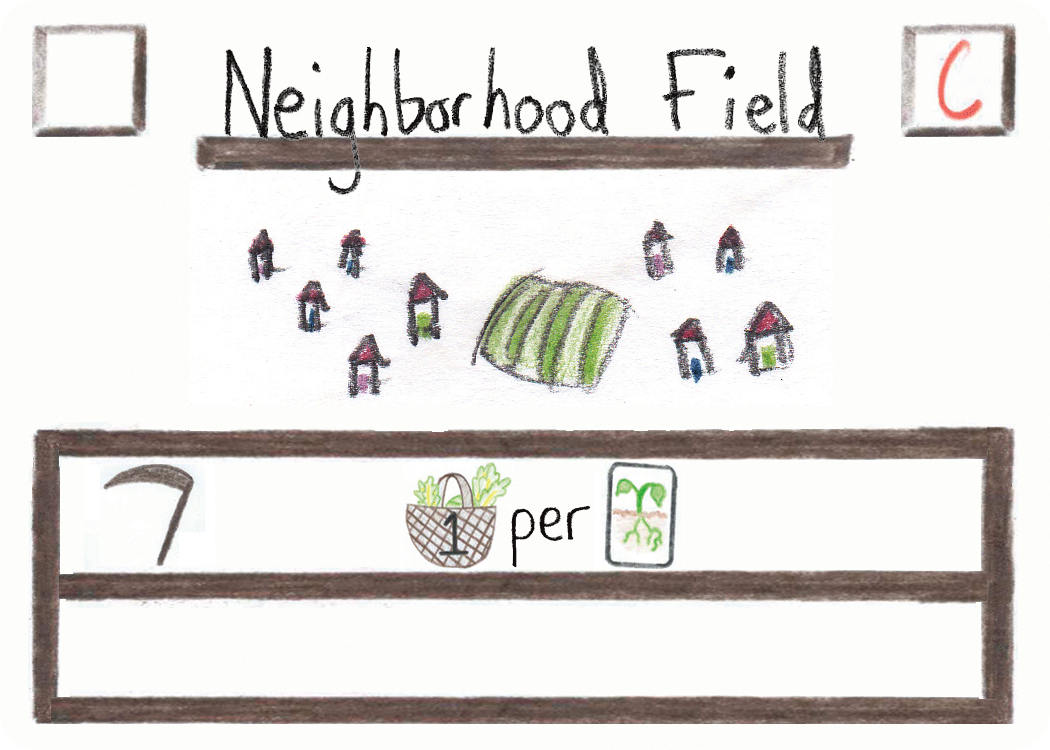 Neighborhood Field
C
1 per